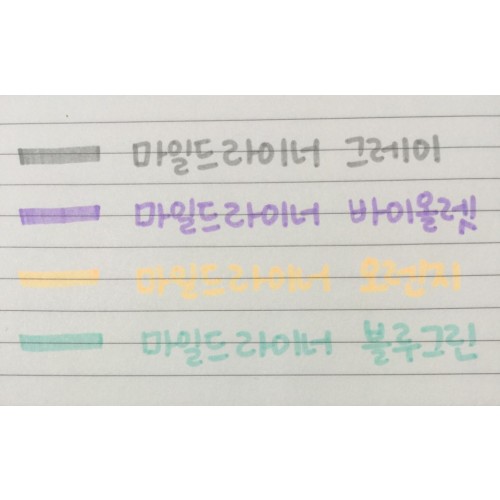 마일드라이너 그레이
마일드라이너 바이올렛
마일드라이너 오렌지
마일드라이너 블루그린